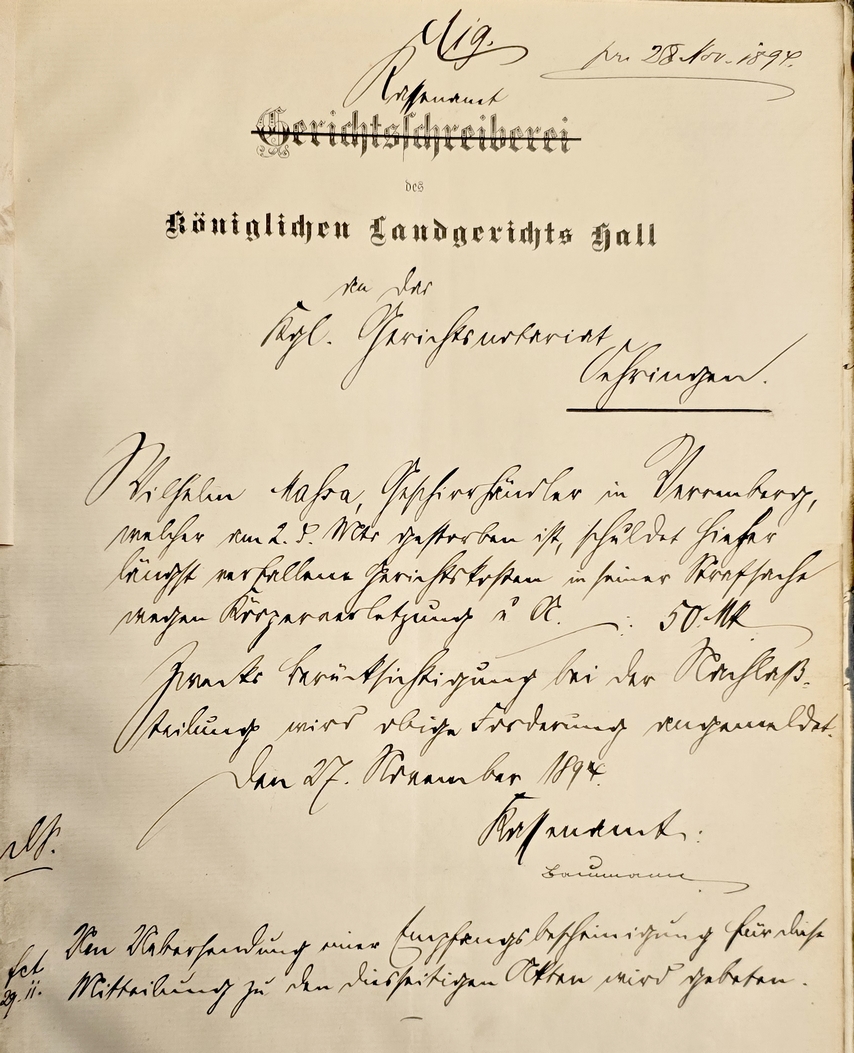 Eig.
prs 28 Nov. 1894.
Kassenamt
Gerichtsschreiberei
des
Königlichen Landgerichts Hall
an das
Kgl. Gerichtsnotariat
Oehringen.
Wilhelm Mahra, Geschirrhändler in Verrenberg,
welcher am 2. d. Mts gestorben ist, schuldet hieher
längst verfallene Gerichtskosten in seiner Strafsache
wegen Körperverletzung u A. : 50 Mk
Zwecks Berücksichtigung bei der Nachlaß-
teilung wird obige Forderung angemeldet.
Den 27. November 1894.
Kassenamt:
Baumann
Um Uebersendung einer Empfangsbescheinigung für diese
Mitteilung zu den diesseitigen Akten wird gebeten.
fct
29. 11.